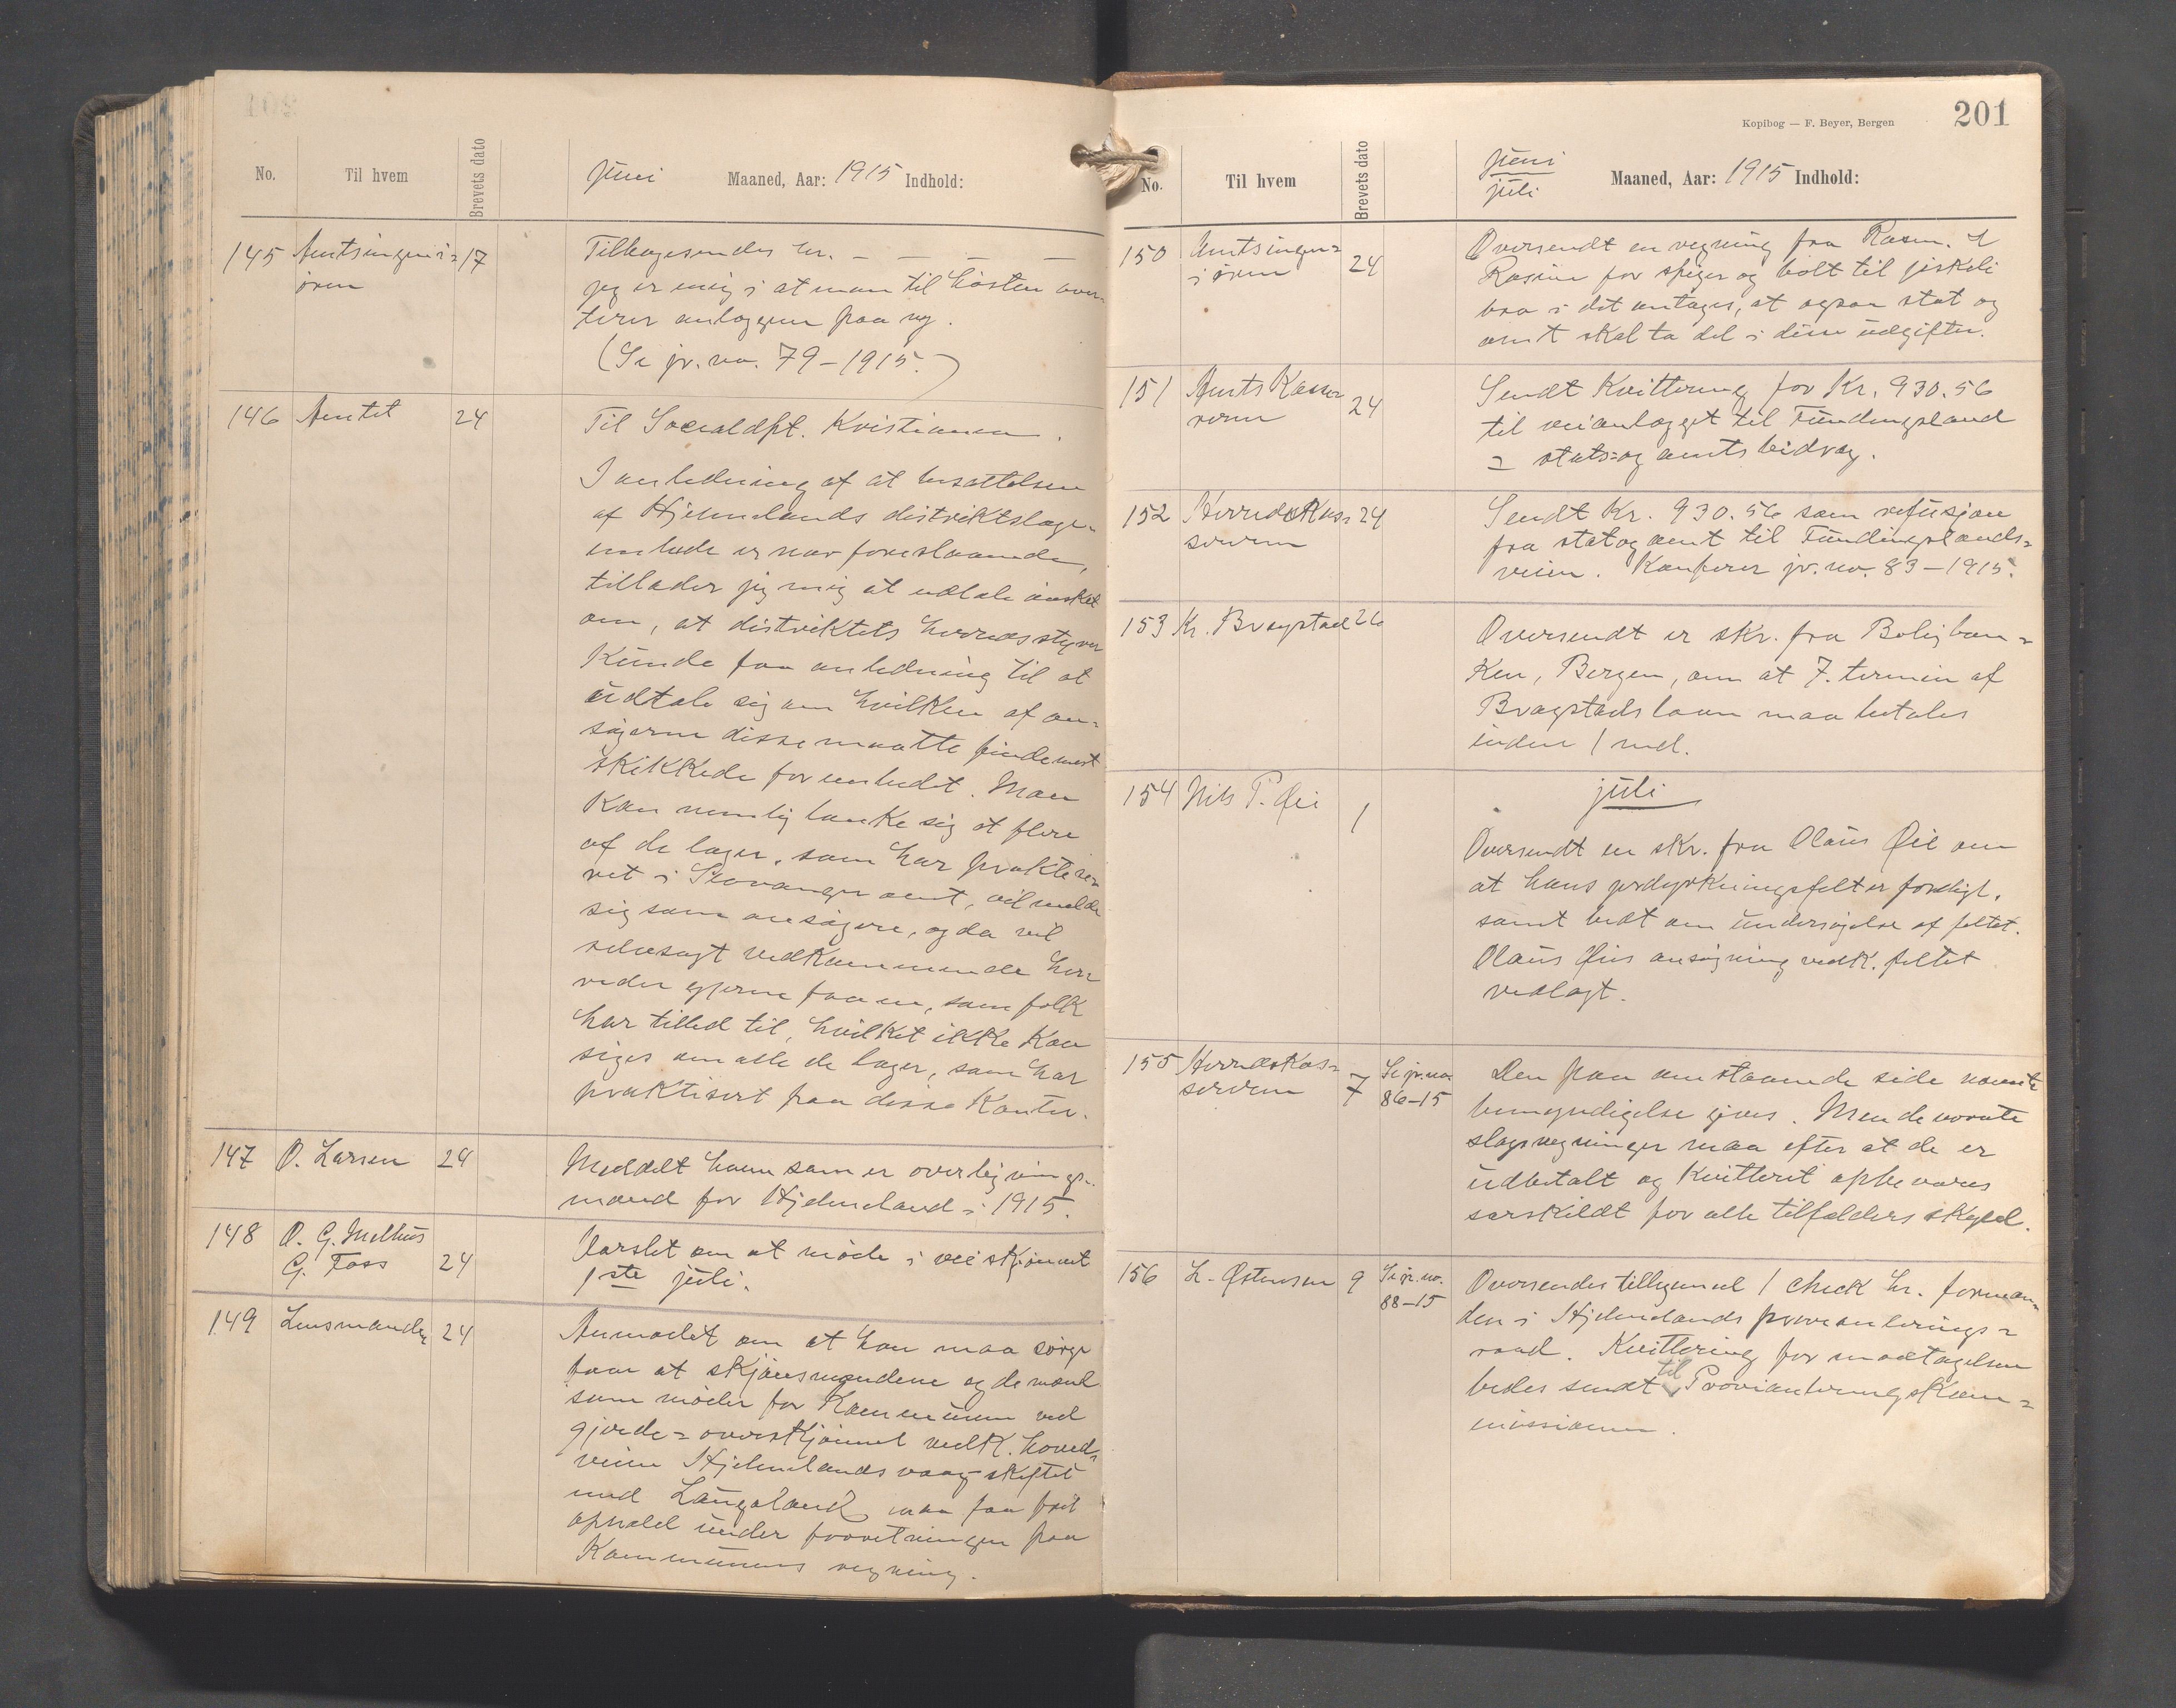 No. Til hvem Brevets dato Juni Maaned, Aar: 1915 Indhold:
145 Amtsingeni= 17 Tilbagesendes hr. — — — —
øren jeg er enig i at man til høsten over
terer anlæggene paa ny.
(Se jr. no. 79-1915.)
146 Amtet 24 Til Socialdpt. Kristiania.
I anledning af at besættelsen
af Hjelmelands distriktslæge-
embede er nær forestaaende,
tillader jeg mig at udtale ønsket
om, at distriktets herredsstyrer
kunde faa anledning til at
udtale sig om hvilken af an=
søgerne disse maatte finde mest
skikkede for embedet. Man
kan nemlig tænke sig at flere
af de læger, som har praktise-
ret i Stavanger amt, vil melde
sig som ansøgere, og da vil
selvsagt vedkommende her
reder gjerne faa en, som folk
har tillid til, hvilket ikke kan
siges om alle de læger, som har
praktisert paa disse kanter.
147 O. Larsen 24 Meddelt ham som er overlignings-
mand for Hjelmeland i 1915.
148 O. G. Melhus Varslet om at møde i veiskjønnet
G. Foss 24 1ste juli.
149 Lensmanden 24 Anmodet om at han maa sørge
for at skjønsmændene og de mænd
som møder for Kommunen ved
gjerde=overskjønnet vedk. hoved=
veien Hjelmelandsvaag-skiftet
med Laugaland maa faa frit
ophold under forretningen paa
Kommunens regning.
Kopibog — F. Beyer, Bergen 201
No. Til hvem Brevets dato Juni
juli Maaned, Aar: 1915 Indhold:
150 Amtsingen= 24 Oversendt en regning fra Rasm. L
iøren Rasine for spiger og bolt til jiskeli
bro i det antages, at ogsaa stat og
amt skal ta del i disse udgifter.
151 Amts Kasse= 24 Sendt Kvittering for Kr. 930.56
reren til veianlægget til Fundingsland
= stats=og amtsbidrag.
152 Herredskas= 24 Sendt Kr. 930.56 som refusjon
sereren fra stat og amt til Fundingslands=
veien. Konferer jr. no. 83-1915.
153 Kr. Bragstad 26 Oversendt er skr. fra Boligban=
ken, Bergen, om at 7. termin af
Bragstads laan maa betales
inden 1 md.
154 Nils P. Øie 1 juli
Oversendt en skr. fra Olaus Øie om
at hans jordyrkningsfelt er færdigt,
samt bedt om undersøgelse af feltet.
Olaus Øies ansøgning vedk. feltet
vedlagt.
155 Herredskas= 7 Se jr. no. Den paa omstaaende side nævnte
sereren 86-15 bemyndigelse gives. Men de
slags regninger maa efter at de er
udbetalt og kvittert opbevares
særskildt for alle tilfælders skyld.
156 L. Østensen 9 Se jr. no. Oversendes tilligemed 1 check hr. forman=
88-15 den i Hjelmelands provianterings=
raad. Kvittering for modtagelsen
bedes sendt til Provianteringskom=
missionen.